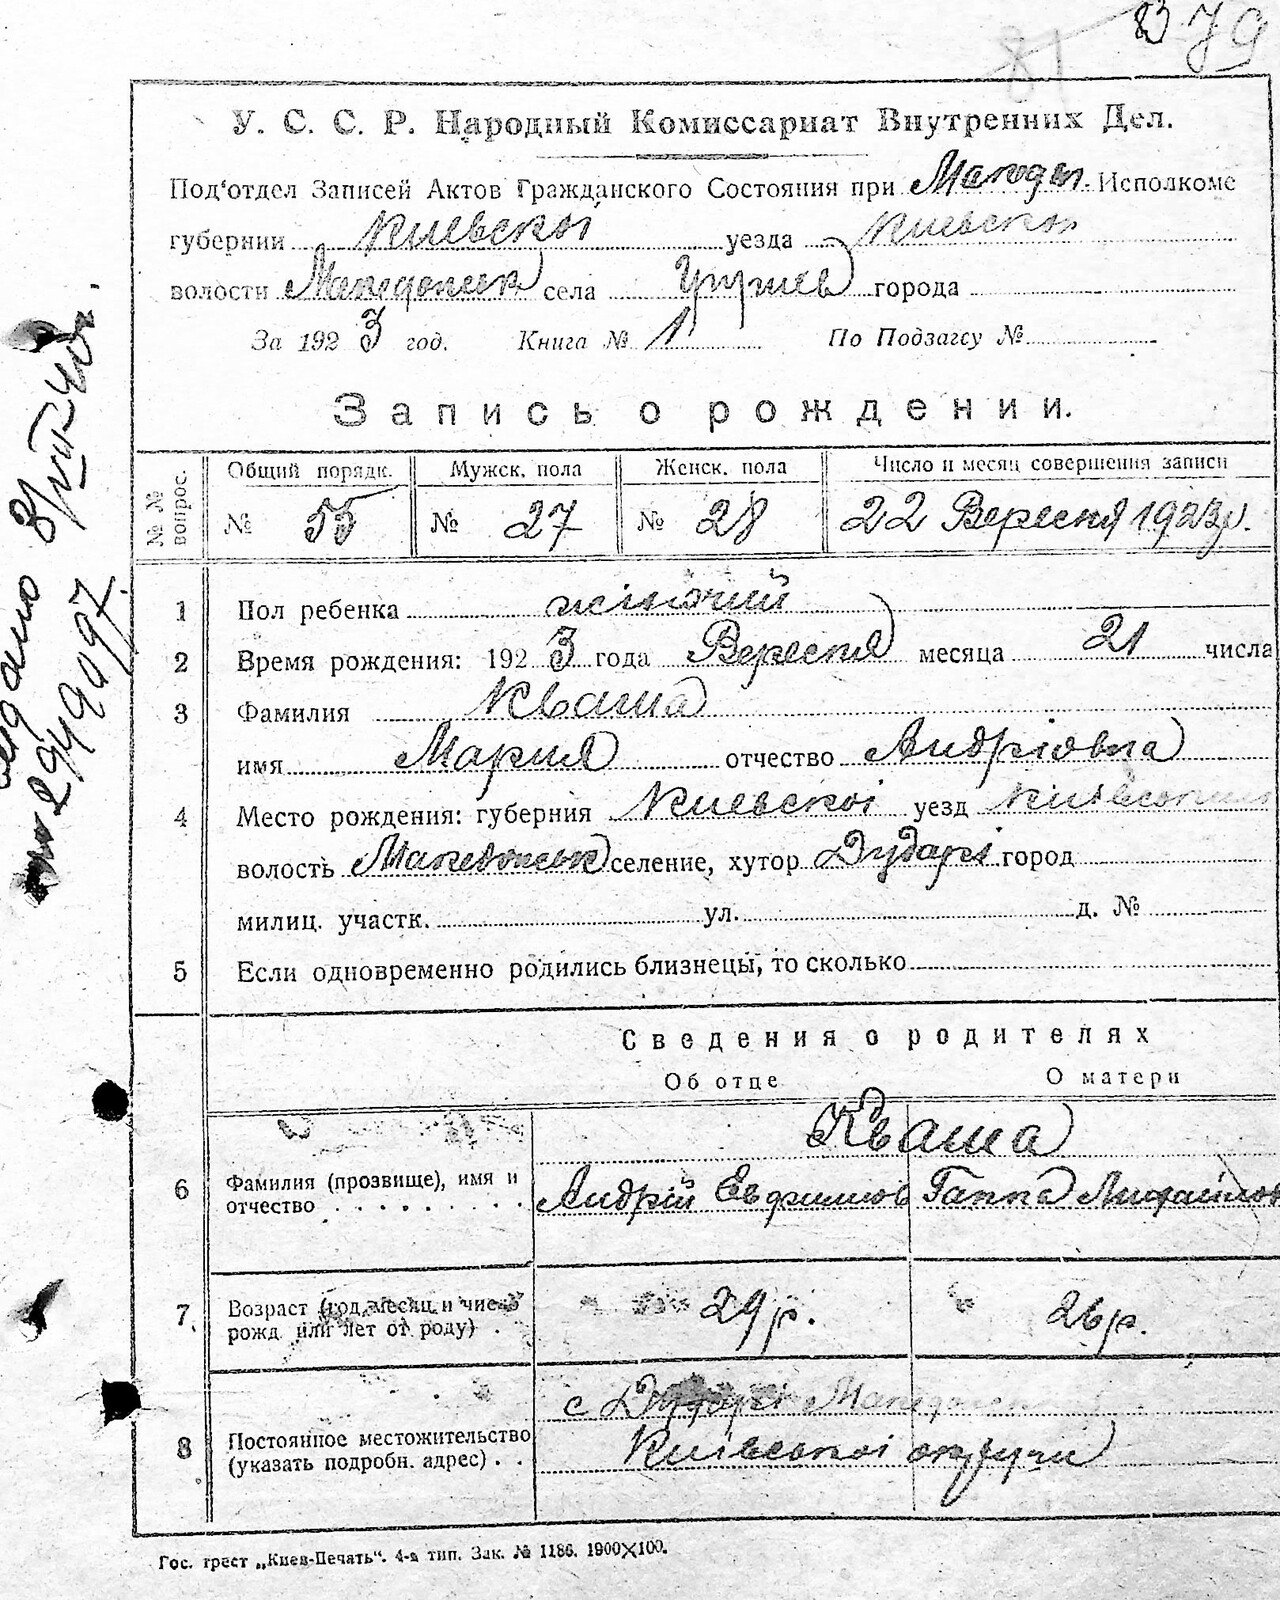 83 79
81
У. С. С. Р. Народный Комиссариат Внутренних Дел.
Под'отдел Записей Актов Гражданского Состояния при Македы. Исполкоме
губернии Киевскоі уезда Киевскои
волости Македонск села города
За 1923 год. Книга № 1 По Подзагсу №
Запись о рождении.
№ № вопрос.
Общий порядк. Мужск. пола Женск. пола Число и месяц совершения записи
№ 55 № 27 № 28 22 Вересня 1923р.
1 Пол ребенка жіночий
2 Время рождения: 1923 года Вересня месяца 21 числа
3 Фамилия Кваша
имя Мария отчество Андріовна
4 Место рождения: губерния Киевскоі уезд
волость Македонськ селение, хутор Дударі город
милиц. участк. ул. д. №
5 Если одновременно родились близнецы, то сколько
Сведения о родителях
Об отце О матери
Кваша
6 Фамилия (прозвище), имя и
отчество Андрій Евфимов Ганна Михайлов
7 Возраст (год, месяц и число
рожд или лет от роду) 29 р. 26 р.
с Дударі
8 Постоянное местожительство
(указать подробн. адрес) Київськоі округи
Гос. трест „Киев-Печать". 4-я тип. Зак. № 1186. 1900X100.